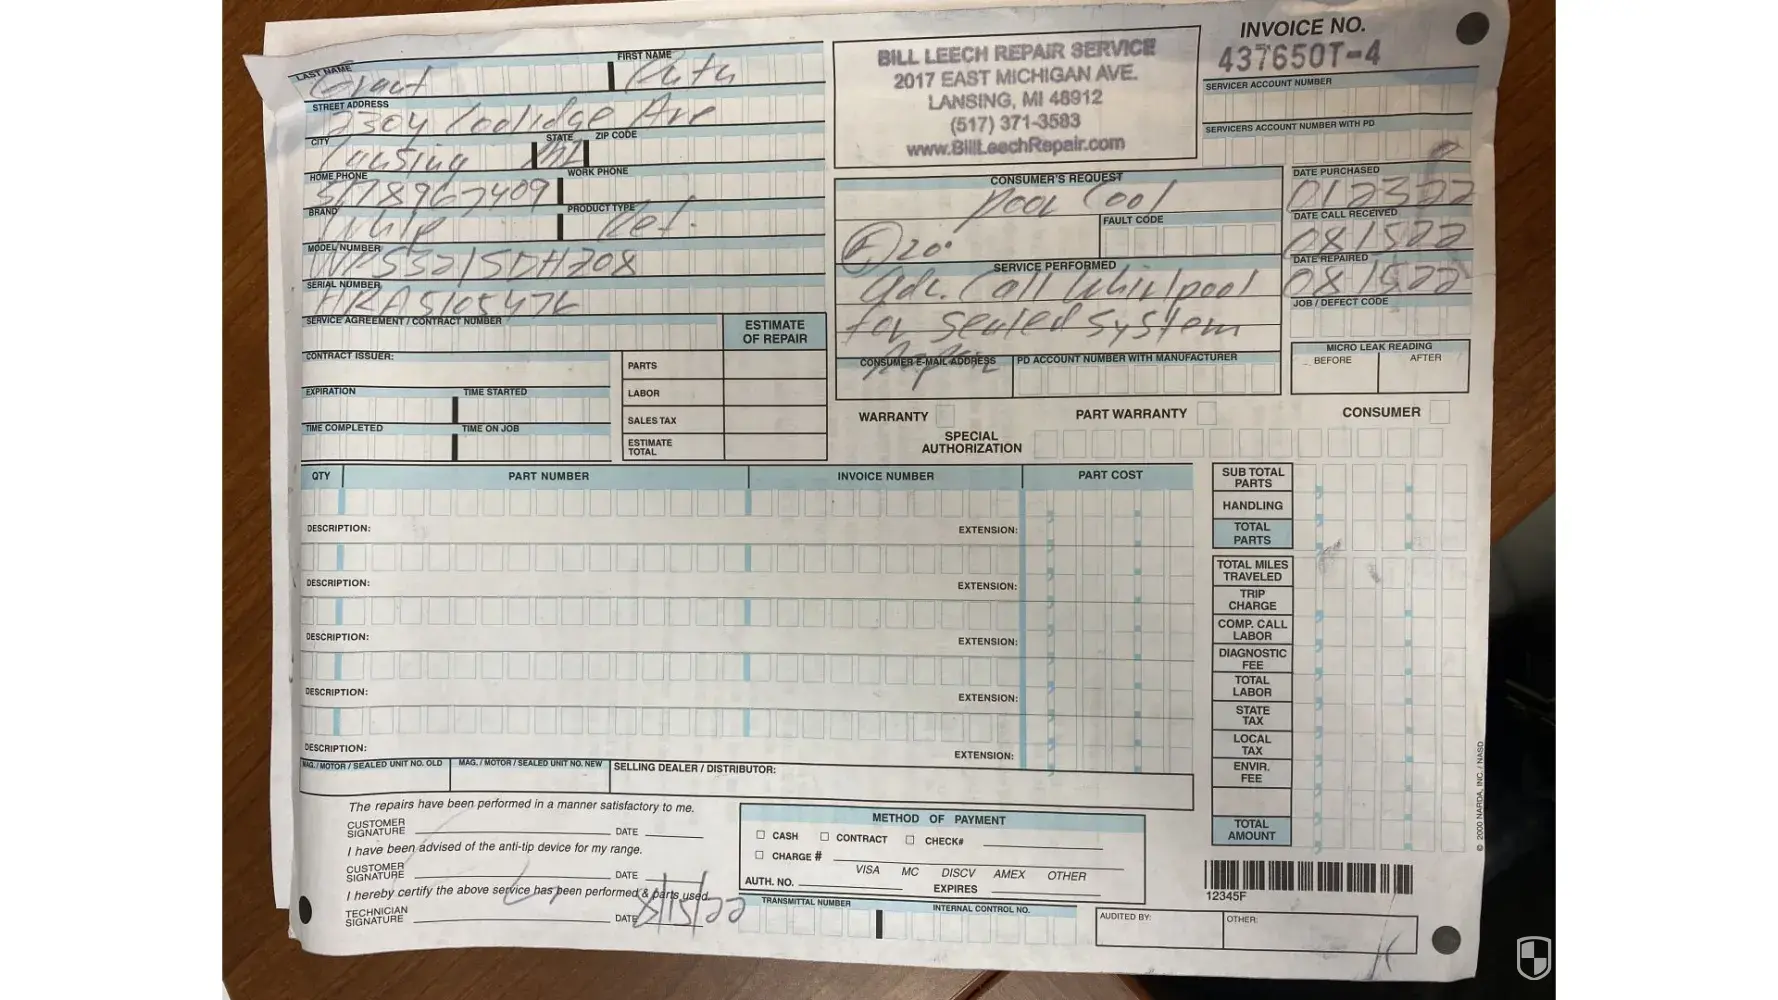 INVOICE NO.
437650T-4
BILL LEECH REPAIR SERVICE
2017 EAST MICHIGAN AVE.
LANSING, MI 48912
(517) 371-3583
www.BillLeechRepair.com
LAST NAME FIRST NAME
Grant
STREET ADDRESS
2304 Coolidge Ave
CITY STATE ZIP CODE
Lansing MI
HOME PHONE WORK PHONE
5178967409
BRAND PRODUCT TYPE
Whlp Ref.
MODEL NUMBER
SERIAL NUMBER
HRA5105476
SERVICE AGREEMENT / CONTRACT NUMBER
CONTRACT ISSUER:
EXPIRATION TIME STARTED
TIME COMPLETED TIME ON JOB
ESTIMATE
OF REPAIR
PARTS
LABOR
SALES TAX
ESTIMATE
TOTAL
CONSUMER'S REQUEST
poor Cool
FAULT CODE
F 20°
SERVICE PERFORMED
Adv. Call Whirlpool
for Sealed System
CONSUMER E-MAIL ADDRESS PD ACCOUNT NUMBER WITH MANUFACTURER
SERVICER ACCOUNT NUMBER
SERVICERS ACCOUNT NUMBER WITH PD
DATE PURCHASED
012322
DATE CALL RECEIVED
081522
DATE REPAIRED
081522
JOB / DEFECT CODE
MICRO LEAK READING
BEFORE AFTER
WARRANTY PART WARRANTY CONSUMER
SPECIAL
AUTHORIZATION
QTY PART NUMBER INVOICE NUMBER PART COST
DESCRIPTION: EXTENSION:
DESCRIPTION: EXTENSION:
DESCRIPTION: EXTENSION:
DESCRIPTION: EXTENSION:
DESCRIPTION: EXTENSION:
SUB TOTAL
PARTS
HANDLING
TOTAL
PARTS
TOTAL MILES
TRAVELED
TRIP
CHARGE
COMP. CALL
LABOR
DIAGNOSTIC
FEE
TOTAL
LABOR
STATE
TAX
LOCAL
TAX
ENVIR.
FEE
TOTAL
AMOUNT
MAG. / MOTOR / SEALED UNIT NO. OLD MAG. / MOTOR / SEALED UNIT NO. NEW SELLING DEALER / DISTRIBUTOR:
The repairs have been performed in a manner satisfactory to me.
CUSTOMER
SIGNATURE DATE
I have been advised of the anti-tip device for my range.
CUSTOMER
SIGNATURE DATE
I hereby certify the above service has been performed & parts used.
TECHNICIAN
SIGNATURE DATE 8/15/22
METHOD OF PAYMENT
CASH CONTRACT CHECK#
CHARGE #
VISA MC DISCV AMEX OTHER
AUTH. NO. EXPIRES
TRANSMITTAL NUMBER INTERNAL CONTROL NO.
12345F
AUDITED BY: OTHER:
© 2000 NARDA, INC. / NASD